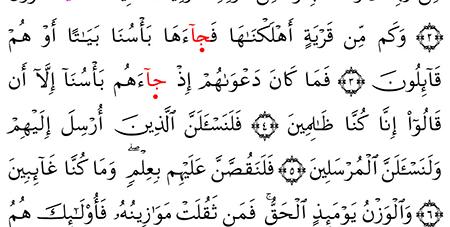 ﴿٣﴾ وَكَم مِّن قَرْيَةٍ أَهْلَكْنَـٰهَا فَجَآءَهَا بَأْسُنَا بَيَـٰتًا أَوْ هُمْ
قَآئِلُونَ ﴿٤﴾ فَمَا كَانَ دَعْوَىٰهُمْ إِذْ جَآءَهُم بَأْسُنَآ إِلَّآ أَن
قَالُوٓا۟ إِنَّا كُنَّا ظَـٰلِمِينَ ﴿٥﴾ فَلَنَسْـَٔلَنَّ ٱلَّذِينَ أُرْسِلَ إِلَيْهِمْ
وَلَنَسْـَٔلَنَّ ٱلْمُرْسَلِينَ ﴿٦﴾ فَلَنَقُصَّنَّ عَلَيْهِم بِعِلْمٍۢ ۖ وَمَا كُنَّا غَآئِبِينَ
﴿٧﴾ وَٱلْوَزْنُ يَوْمَئِذٍ ٱلْحَقُّ ۚ فَمَن ثَقُلَتْ مَوَٰزِينُهُۥ فَأُو۟لَـٰٓئِكَ هُمُ